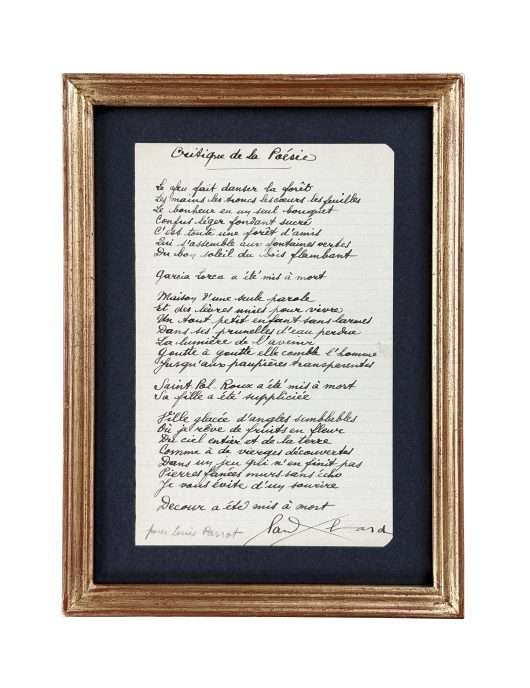 Critique de la Poésie
Le feu fait danser la forêt
Les mains les troncs les cœurs les feuilles
Le bonheur en un seul bouquet
Confus léger fondant sucré
C'est toute une forêt d'amis
Qui s'assemble aux fontaines vertes
Du bon soleil du bois flambant
Garcia Lorca a été mis à mort
Maison d'une seule parole
Et des lèvres unies pour vivre
Un tout petit enfant sans larmes
Dans ses prunelles d'eau perdue
La lumière de l'avenir
Goutte à goutte elle comble l'homme
Jusqu'aux paupières transparentes
Saint Pol-Roux a été mis à mort
Sa fille a été suppliciée
Ville glacée d'angles semblables
Où je rêve de fruits en fleur
Du ciel entier et de la terre
Comme à de vierges découvertes
Dans un jeu qui n'en finit pas
Pierres fanées murs sans écho
Je vous évite d'un sourire
Decour a été mis à mort
pour Louis Parrot
Paul Eluard